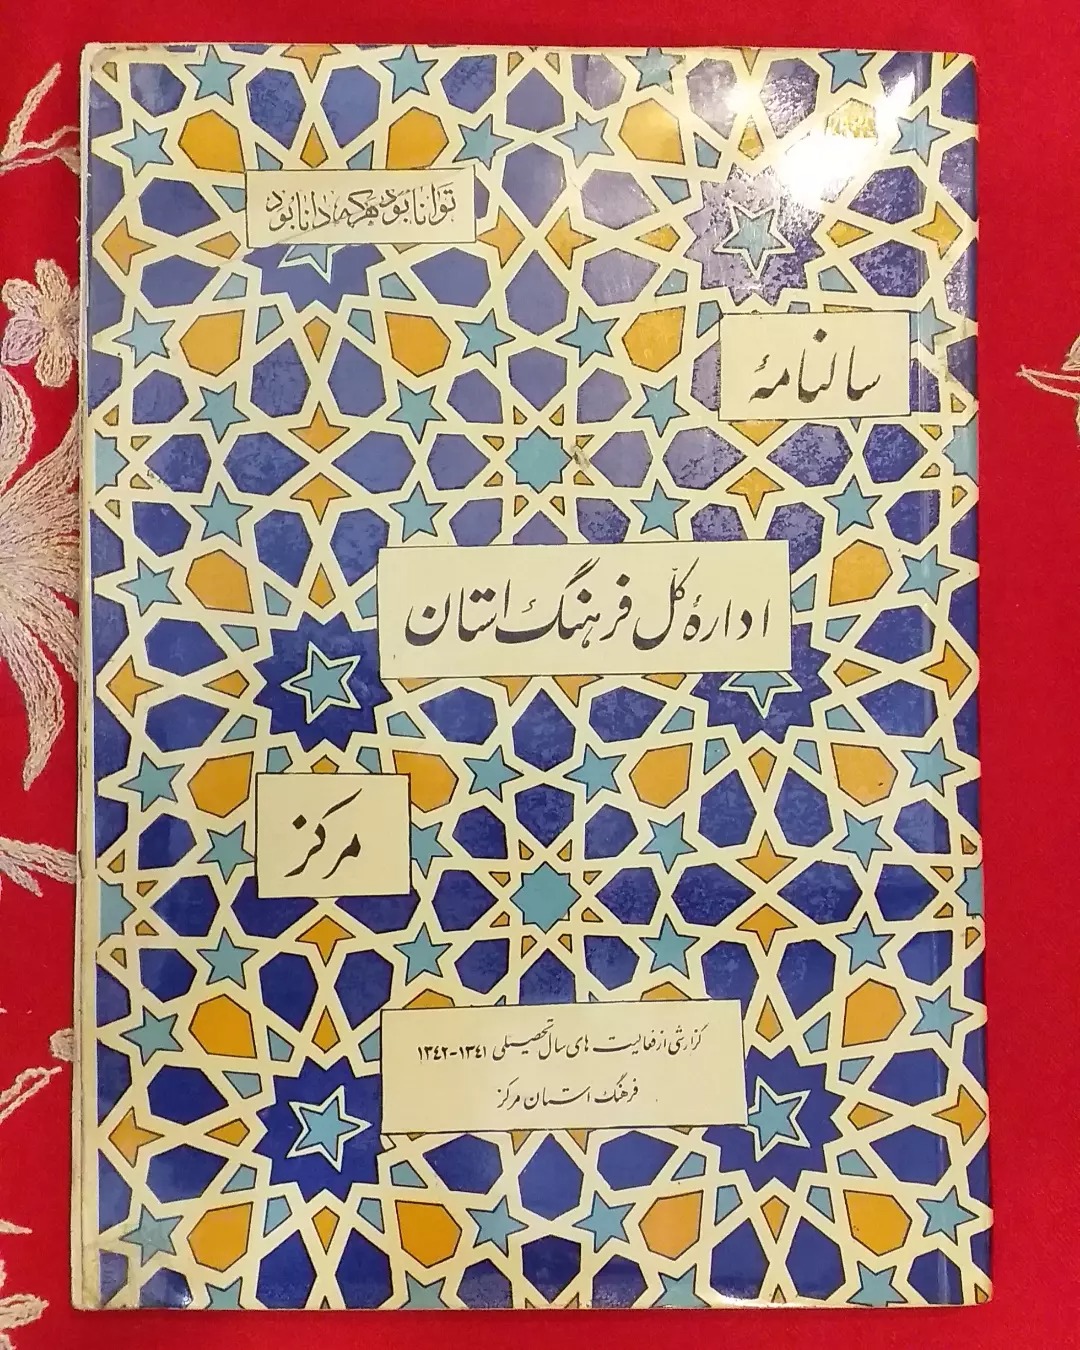 توانا بود هرکه دانا بود
سالنامهٔ
ادارهٔ کل فرهنگ استان
مرکز
گزارشی از فعالیت های سال تحصیلی ۱۳۴۱-۱۳۴۲
فرهنگ استان مرکز